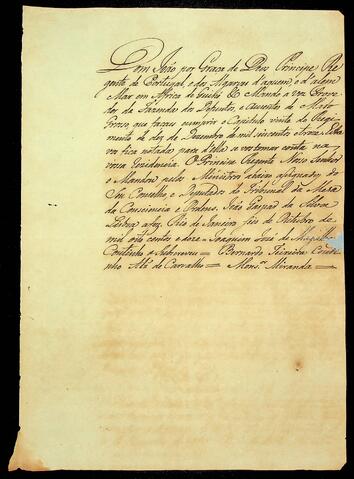 Dom João por Graça de Deos Principe Re
gente de Portugal, e dos Algarves d'aquem, e d'alem
Mar em Africa de Guiné &c Mando a vos Prove
dor da Fazenda dos Defuntos, e Auzentes de Mato
Grosso, que façaes cumprir o Capitulo vinte do Regi
mento de dez de Dezembro de mil seiscentos e treze
vos fica notados para d'ella se vos tomar conta na
vossa Rezidencia. O Principe Regente Nosso Senhor
o Mandou pelos Ministros abaixo assignados, do
Seu Conselho, e Deputados do Tribunal da Meza
da Consciencia e Ordens. João Gaspar da Silva
Lisboa a fez. Rio de Janeiro seis de Outubro de
mil oito centos e doze = Joaquim José de Magalh
Coutinho a Subscreveu = Bernardo Teixeira Couti
nho Alz de Carvalho = Mons.r Miranda =